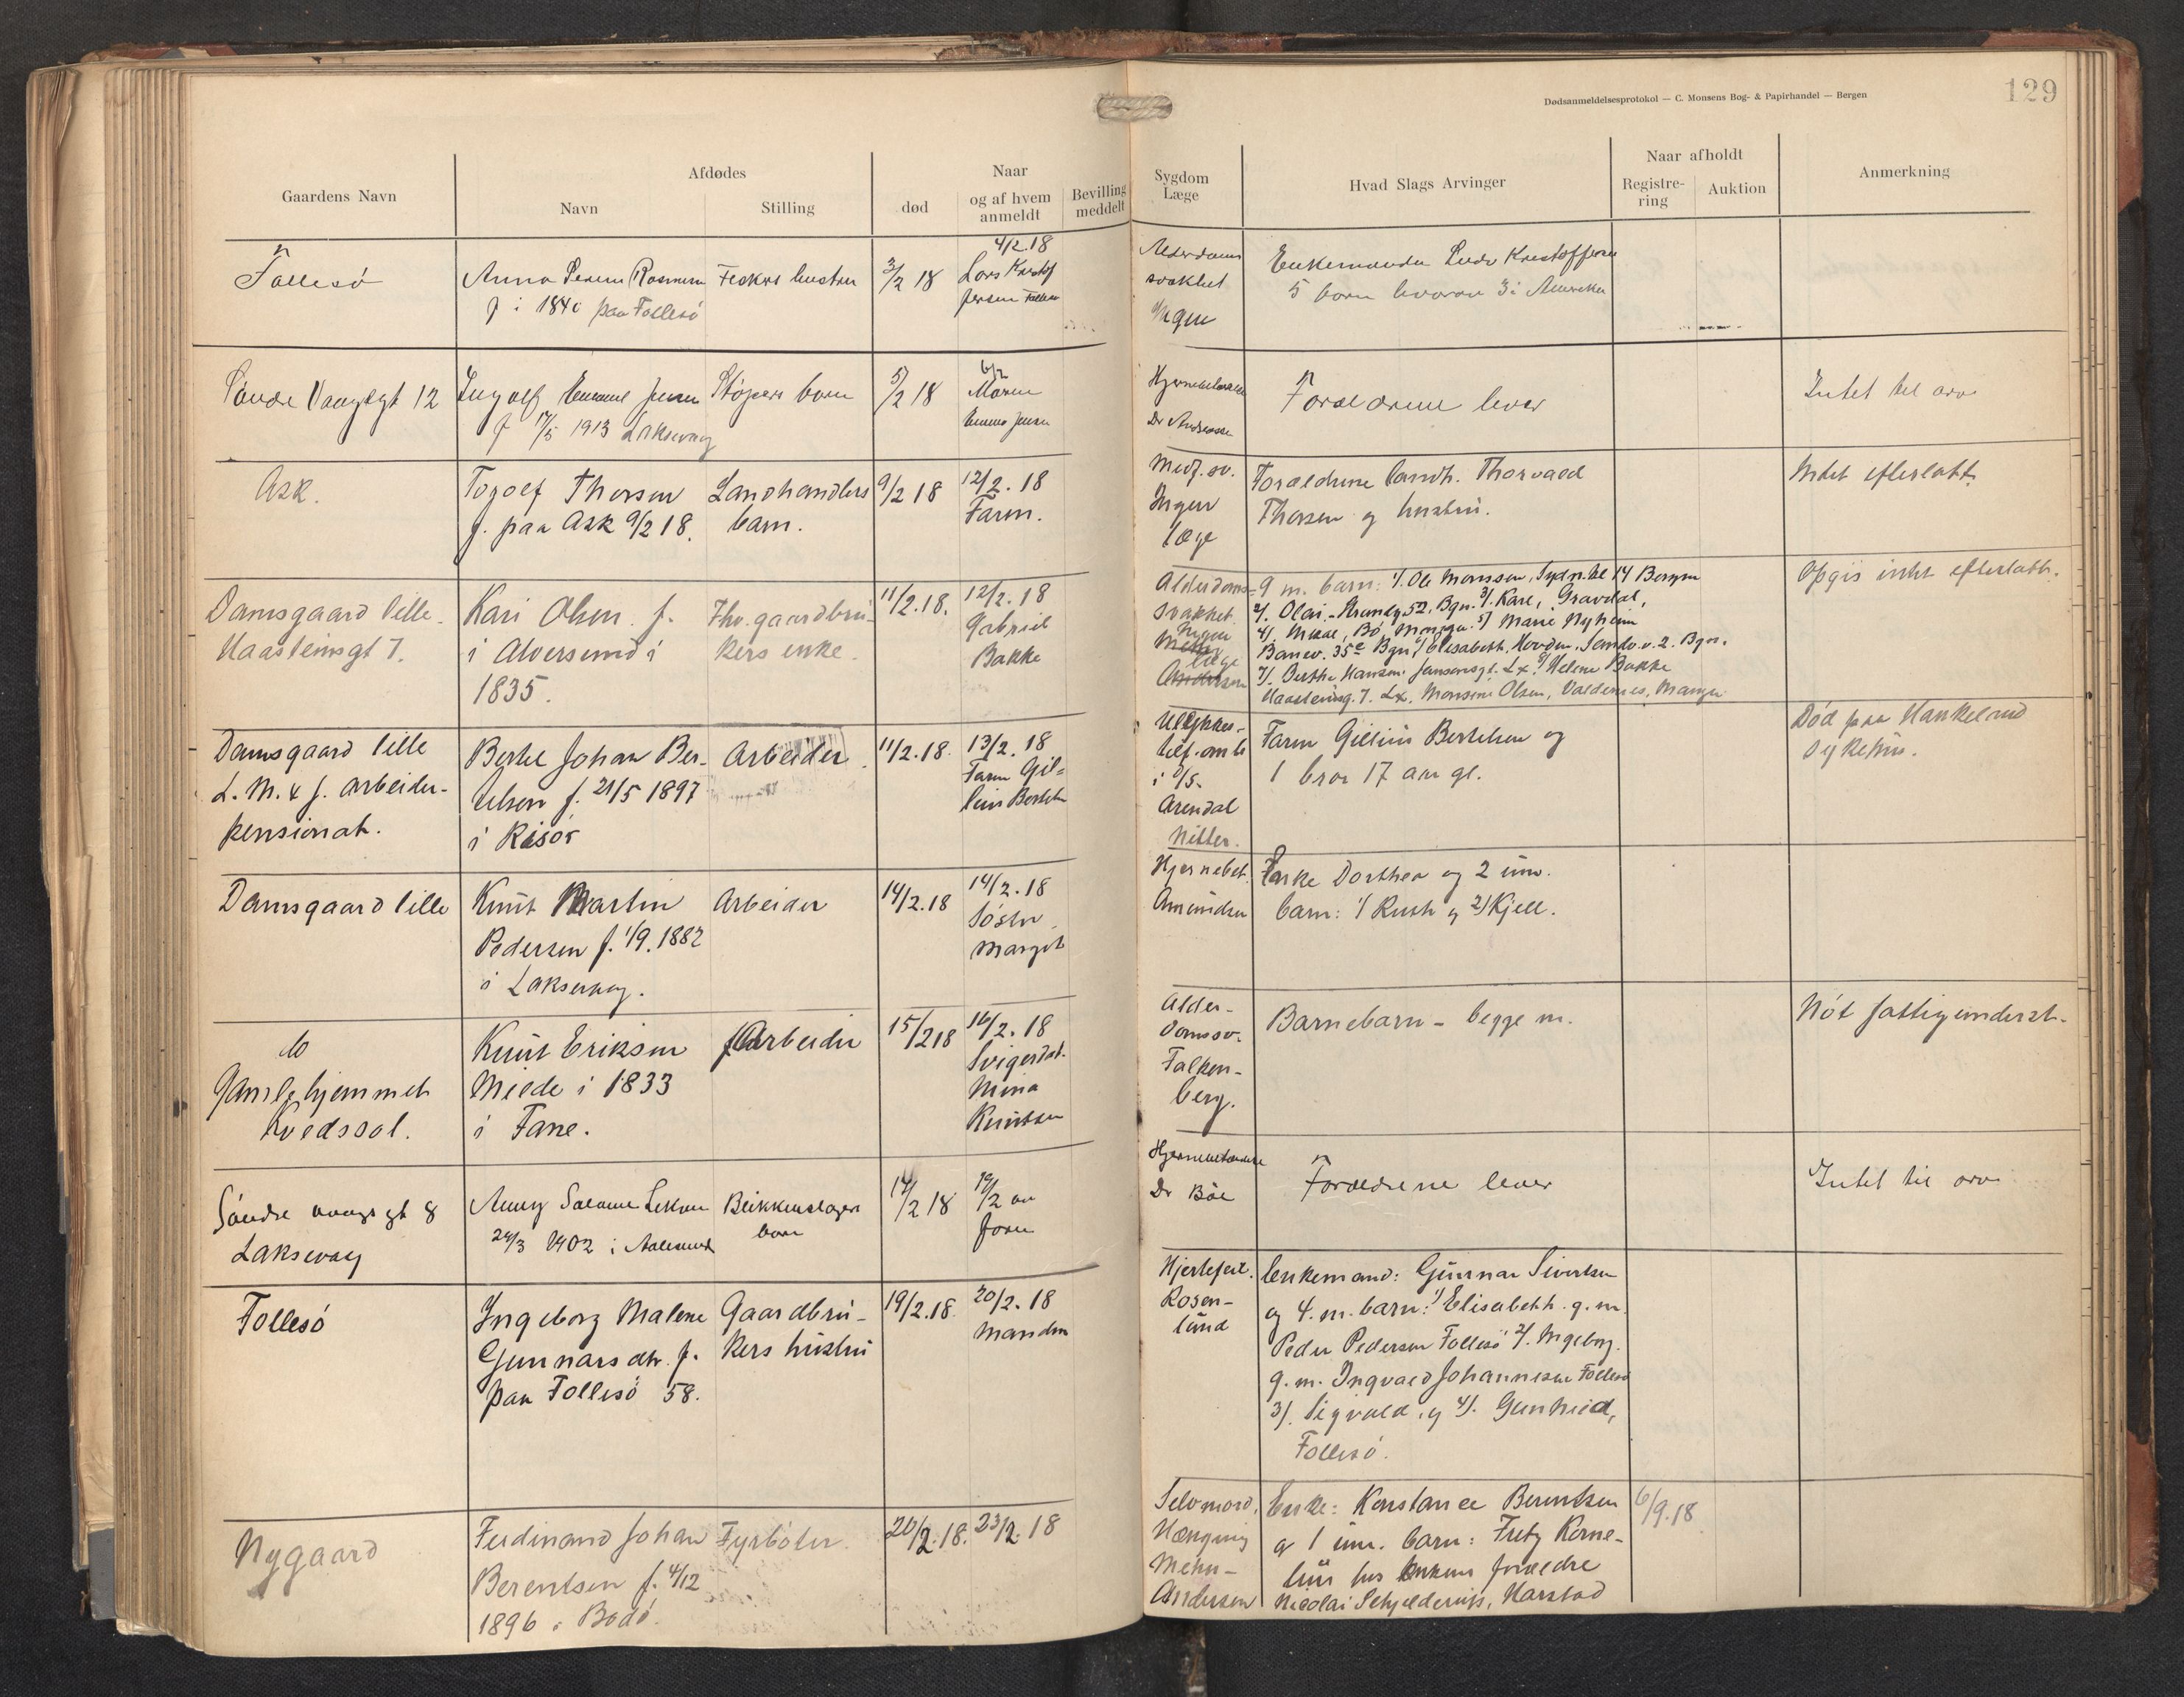 129
Dødsanmeldelsesprotokol — C. Monsens Bog- & Papirhandel — Bergen
Gaardens Navn
Afdødes
Navn
Stilling
død
Naar
og af hvem
anmeldt
Bevilling
meddelt
Sygdom
Læge
Hvad Slags Arvinger
Naar afholdt
Registre-
ring
Auktion
Anmerkning
Follesö
Anna
f i 1840 paa Follesö
Fiskers hustru
3/2 18
4/2.18
Lars Kristof
fersen
Alderdoms
svakhet
Ingen
Enkemanden Kristoffersen
5 born hvorav 3 i Amerika
12
Ingolf Jensen
f 17/5 1913 Laksevaag
Støpers barn
5/2 18
6/2
Moren
Jensen
Hjernebetændelse
Dr
Forældrene lever
Intet til arv
Ask.
Thorsen
f. paa Ask 9/2 18.
Landhandlers
barn.
9/2 18
12/2. 18
Faren.
Medf. sv.
Ingen
læge
Forældrene landh. Thorvald
Thorsen og hustru.
Intet efterlatt
Damsgaard lille.
Haasteinsgt 7.
Kari Olsen f.
i Alversund i
1835.
Fhv. gaardbru-
kers enke.
11/2.18.
12/2. 18
Gabriel
Bakke
Alderdoms-
svakhet
Ingen
læge
9 m. barn: 1/. Ole Monssen, 14 Bergen
2/. Olai, 52, Bgn. 3/. Karl, Gravdal,
4/. Bö, Manger. 5/ Marie Nyheim
35e Bgn. Elisabeth 2. Bgn.
7/. Berthe Hansen Jansonsgt. Lx. 8/ Helene Bakke
Haasteinsg. 7. Lx. Monsine Olsen, Valdernes, Manger
Opgis intet efterlatt.
Damsgaard lille
L. M. & J. arbeider-
pensionat.
Bertel Johan Ber-
telsen f. 21/5 1897
i Risör
Arbeider
11/2.18.
13/2. 18
Faren Gil-
Ulykkes-
i D/S.
Arendal
Nitter.
Faren Bertelsen og
1 bror 17 aar gl.
Død paa Haukeland
sykehus.
Damsgaard lille
Knut Martin
Pedersen f. 1/9. 1882
i Laksevaag.
Arbeider
14/2.18
14/2. 18
Söster
Margit
Hjernebet.
Amundsen
Enke Dorthea og 2 um.
barn: 1/ Ruth og 2/ Kjell.
do
Gamlehjemmet
Kvedssol.
Knut Eriksen
Mielde i 1833
i Fane.
Arbeider
15/2 18
16/2. 18
Svigerdat.
Mina
Knutsen
Alder-
domssv.
Falken-
berg.
Barnebarn - begge m.
Nöt fattigunderst.
Söndre vaags gt 8
Laksevaag
24/3 1902 i Aalesund
Blikkenslagers
barn
18
19/2 av
faren
Hjernebetændelse
Dr Böe
Forældrene lever
Intet til arv
Follesö
Ingeborg Malene
Gunnarsdtr. f.
paa Follesö 58.
Gaardbru-
kers hustru
19/2.18.
20/2. 18
Manden
Hjertefeil.
Rosen-
lund
Enkemand: Gunnar Sivertsen
og 4. m. barn: 1/ Elisabeth. g. m.
Peder Pedersen Follesö 2/. Ingeborg.
g. m. Ingvald Johannesen Follesö
3/. Sigvald, og 4/. Gunhild,
Follesö.
Nygaard
Ferdinand Johan
Berentsen f. 4/12
1896 i Bodö.
Fyrböter.
20/2.18.
23/2. 18
Selvmord,
Hængning
Mehn-
Andersen
Enke: Konstance Berentsen
og 1 um. barn: Fritz Korne-
lius hos enkens forældre
Nicolai Schjelderups, Harstad
6/9.18